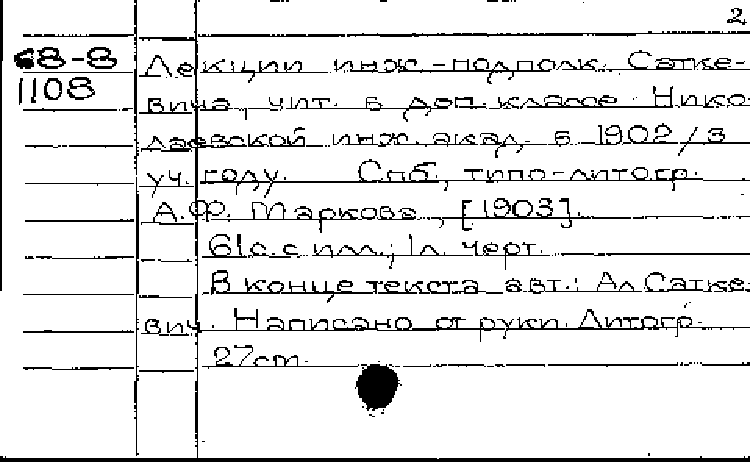 2
68-8 Лекции инж.-подполк. Сатке-
1108 вича, чит. в доп. классе Нико-
лаевской инж. акад. в 1902/3
уч. году. Спб., типо-литогр.
А.Ф. Маркова, [1903].
61 с. с илл.; 1 л. черт.
В конце текста авт.: Ал Сатке-
вич. Написано от руки. Литогр.
27 см.